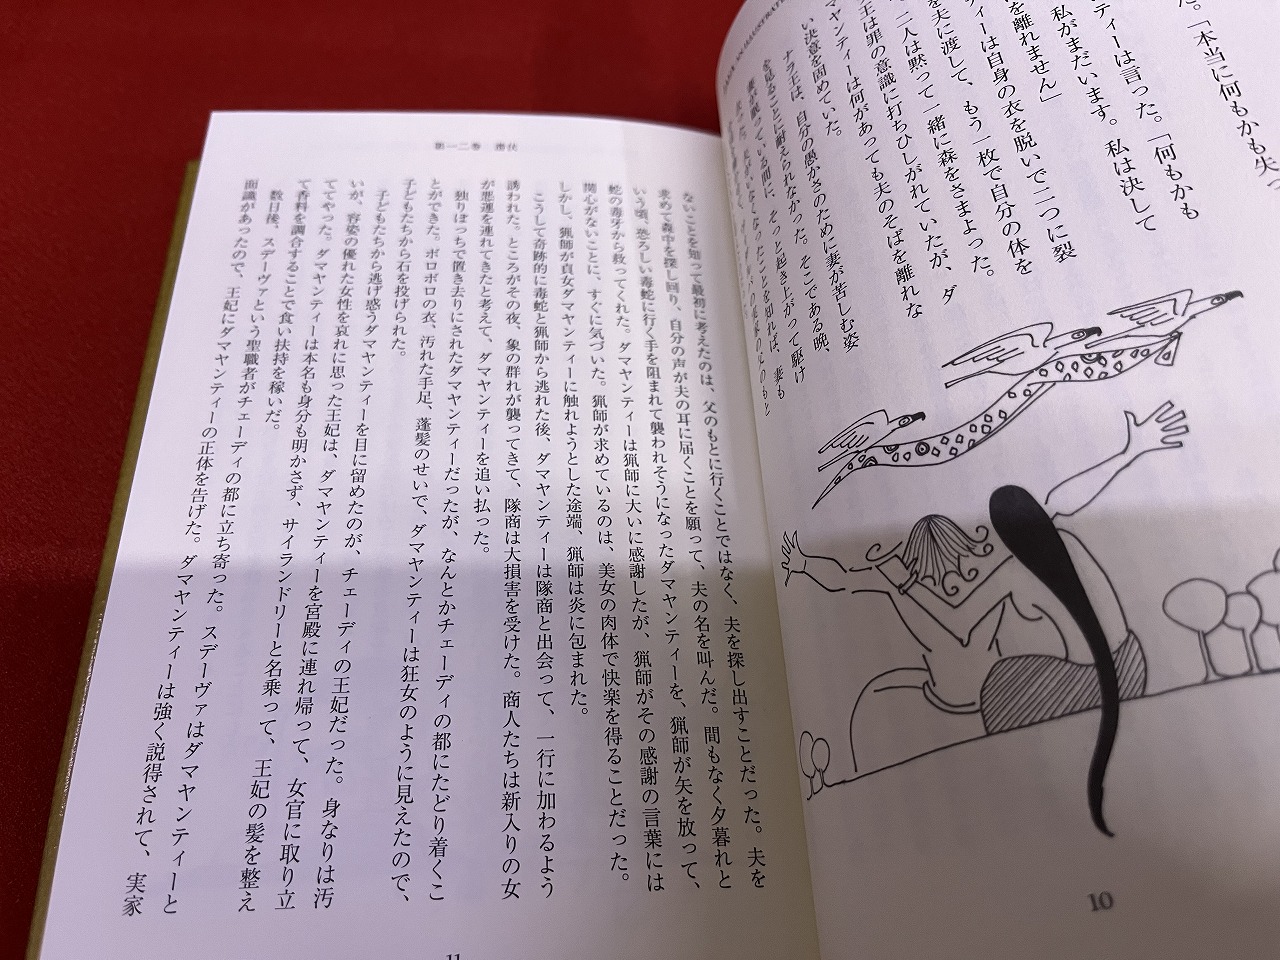 た。「本当に何もかも失っ
ティーは言った。「何もかも
私がまだいます。私は決して
を離れません」
ィーは自身の衣を脱いで二つに裂
を夫に渡して、もう一枚で自分の体を
二人は黙って一緒に森をさまよった。
王は罪の意識に打ちひしがれていたが、ダ
マヤンティーは何があっても夫のそばを離れな
い決意を固めていた。
ナラ王は、自分の愚かさのために妻が苦しむ姿
を見ることに耐えられなかった。そこである晩、
妻が眠っている間に、そっと起き上がって駆け
10
第一二巻 潜伏
ないことを知って最初に考えたのは、父のもとに行くことではなく、夫を探し出すことだった。夫を
求めて森中を探し回り、自分の声が夫の耳に届くことを願って、夫の名を叫んだ。間もなく夕暮れと
いう頃、恐ろしい毒蛇に行く手を阻まれて襲われそうになったダマヤンティーを、猟師が矢を放って、
蛇の毒牙から救ってくれた。ダマヤンティーは猟師に大いに感謝したが、猟師がその感謝の言葉には
関心がないことに、すぐに気づいた。猟師が求めているのは、美女の肉体で快楽を得ることだった。
しかし、猟師が貞女ダマヤンティーに触れようとした途端、猟師は炎に包まれた。
こうして奇跡的に毒蛇と猟師から逃れた後、ダマヤンティーは隊商と出会って、一行に加わるよう
誘われた。ところがその夜、象の群れが襲ってきて、隊商は大損害を受けた。商人たちは新入りの女
が悪運を連れてきたと考えて、ダマヤンティーを追い払った。
独りぼっちで置き去りにされたダマヤンティーだったが、なんとかチェーディの都にたどり着くこ
とができた。ボロボロの衣、汚れた手足、蓬髪のせいで、ダマヤンティーは狂女のように見えたので、
子どもたちから石を投げられた。
子どもたちから逃げ惑うダマヤンティーを目に留めたのが、チェーディの王妃だった。身なりは汚
いが、容姿の優れた女性を哀れに思った王妃は、ダマヤンティーを宮殿に連れ帰って、女官に取り立
ててやった。ダマヤンティーは本名も身分も明かさず、サイランドリーと名乗って、王妃の髪を整え
て香料を調合することで食い扶持を稼いだ。
数日後、スデーヴァという聖職者がチェーディの都に立ち寄った。スデーヴァはダマヤンティーと
面識があったので、王妃にダマヤンティーの正体を告げた。ダマヤンティーは強く説得されて、実家
11